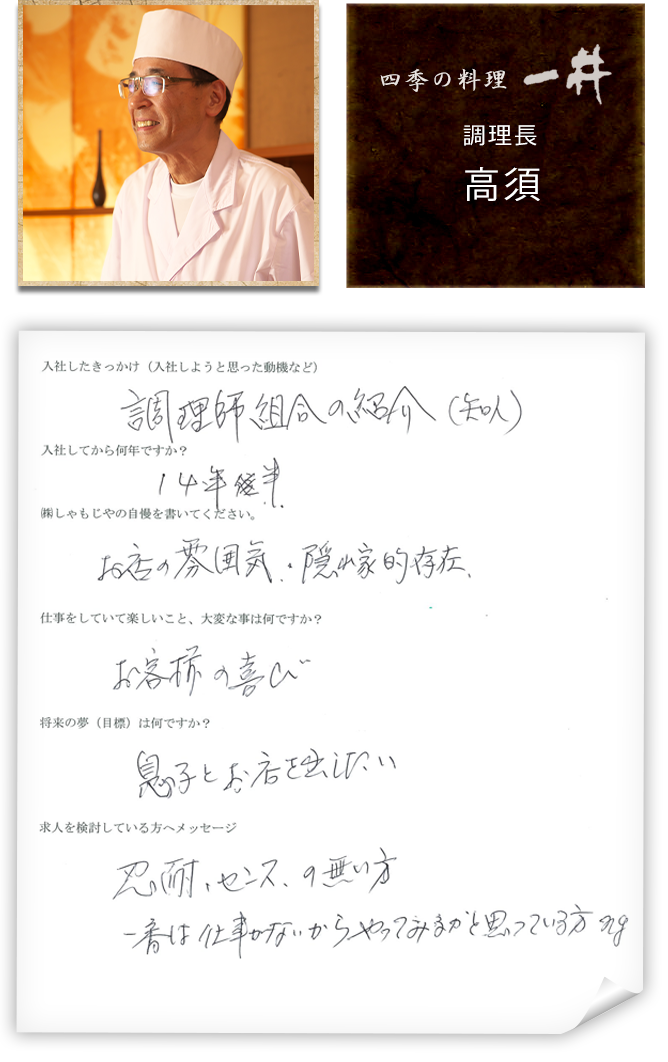 四季の料理 一井
調理長
高須
入社したきっかけ（入社しようと思った動機など）
調理師組合の紹介（知人）
入社してから何年ですか？
14年後半.
㈱しゃもじやの自慢を書いてください。
お店の雰囲気.・隠れ家的存在.
仕事をしていて楽しいこと、大変な事は何ですか？
お客様の喜び
将来の夢（目標）は何ですか？
息子とお店を出したい
求人を検討している方へメッセージ
忍耐、センス、の無い方
一番は仕事がないからやってみるかと思っている方 ng